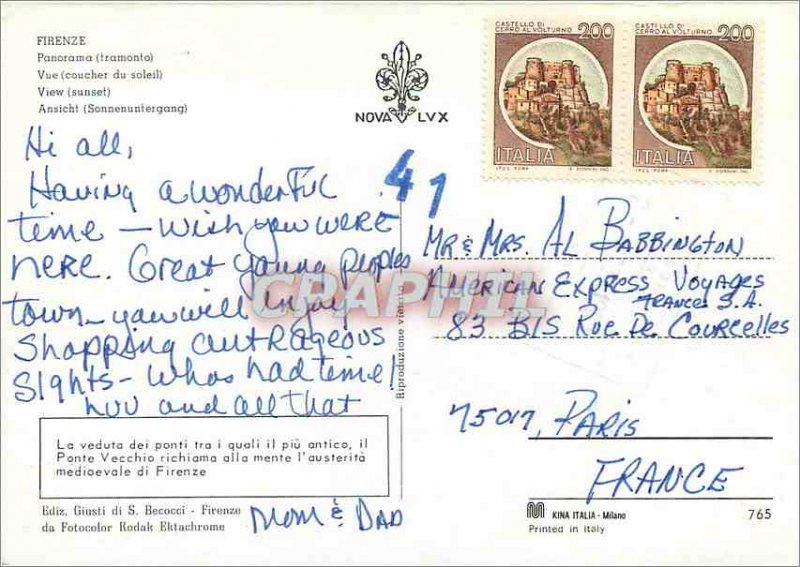 FIRENZE
Panorama (tramonto)
Vue (coucher du soleil)
View (sunset)
Ansicht (Sonnenuntergang)
NOVA LVX
CASTELLO DI
CERRO AL VOLTURNO 200
ITALIA
CASTELLO DI
CERRO AL VOLTURNO 200
ITALIA
41
Hi all,
Having a wonderful
time – wish you were
here. Great young peoples
town – you will enjoy
Shopping outrageous
Sights – whos had time!
luv and all that
Mom & Dad
Mr & Mrs. Al Babbington
American Express Voyages
France S.A.
83 Bis Rue De Courcelles
75017, Paris
France
CRAPHIL
Riproduzione vietata
La veduta dei ponti tra i quali il più antico, il
Ponte Vecchio richiama alla mente l'austerità
medioevale di Firenze
Ediz. Giusti di S. Becocci - Firenze
da Fotocolor Kodak Ektachrome
KINA ITALIA - Milano
Printed in Italy
765